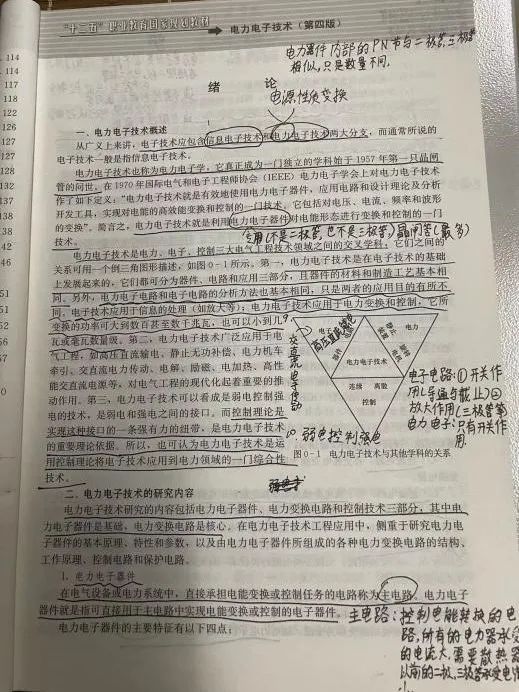 "十二五"职业教育国家规划教材 电力电子技术（第四版）
电力器件内部的PN节与二极管,三极管
相似,只是数量不同.
绪 论
电源性质变换
一、电力电子技术概述
从广义上来讲，电子技术应包含信息电子技术和电力电子技术两大分支，而通常所说的
电子技术一般是指信息电子技术。
电力电子技术也称为电力电子学，它真正成为一门独立的学科始于 1957 年第一只晶闸
管的问世。在 1970 年国际电气和电子工程师协会（IEEE）电力电子学会上对电力电子技术
作了如下定义："电力电子技术就是有效地使用电力电子器件，应用电路和设计理论及分析
开发工具，实现对电能的高效能变换和控制的一门技术，它包括对电压、电流、频率和波形
的变换"。简言之，电力电子技术就是利用电力电子器件对电能形态进行变换和控制的一门
技术。
专用(不是二极管也不是三极管)晶闸管(最多)
电力电子技术是电力、电子、控制三大电气工程技术领域之间的交叉学科；它们之间的
关系可用一个倒三角图形描述，如图 0-1 所示。第一，电力电子技术是在电子技术的基础
上发展起来的，它们都可分为器件、电路和应用三部分，且器件的材料和制造工艺基本相
同。另外，电力电子电路和电子电路的分析方法也基本相同，只是两者的应用目的有所不
同，电子技术应用于信息的处理（如放大等）；电力电子技术应用于电力变换和控制，它所
变换的功率可大到数百甚至数千兆瓦，也可以小到几
瓦或毫瓦数量级。第二，电力电子技术广泛应用于电
气工程，如高压直流输电、静止无功补偿、电力机车
牵引、交直流电力传动、电解、励磁、电加热、高性
能交直流电源等，对电气工程的现代化起着重要的推
动作用。第三，电力电子技术可以看成是弱电控制强
电的技术，是弱电和强电之间的接口。而控制理论是
实现这种接口的一条强有力的纽带，是电力电子技术
的重要理论依据。所以，也可认为电力电子技术是运
用控制理论将电子技术应用到电力领域的一门综合性
技术。
高压直流输电
交直流电力传动
电子
电力
静止
电力电子技术
连续 离散
控制
弱电控制强电
图 0-1 电力电子技术与其他学科的关系
电子电路:①开关作
用(导通与截止)②
放大作用(三极管等)
电力电子:只有开关作
用.
二、电力电子技术的研究内容
电力电子技术研究的内容包括电力电子器件、电力变换电路和控制技术三部分，其中电
力电子器件是基础，电力变换电路是核心。在电力电子技术工程应用中，侧重于研究电力电
子器件的基本原理、特性和参数，以及由电力电子器件所组成的各种电力变换电路的结构、
工作原理、控制电路和保护电路。
1. 电力电子器件
在电气设备或电力系统中，直接承担电能变换或控制任务的电路称为主电路。电力电子
器件就是指可直接用于主电路中实现电能变换或控制的电子器件。
电力电子器件的主要特征有以下四点：
主电路:控制电能转换的电
路,所有的电力器承受
的电流大,需要散热器
以前的二极,三极管承受电
114
114
117
118
122
126
126
132
135
138
142